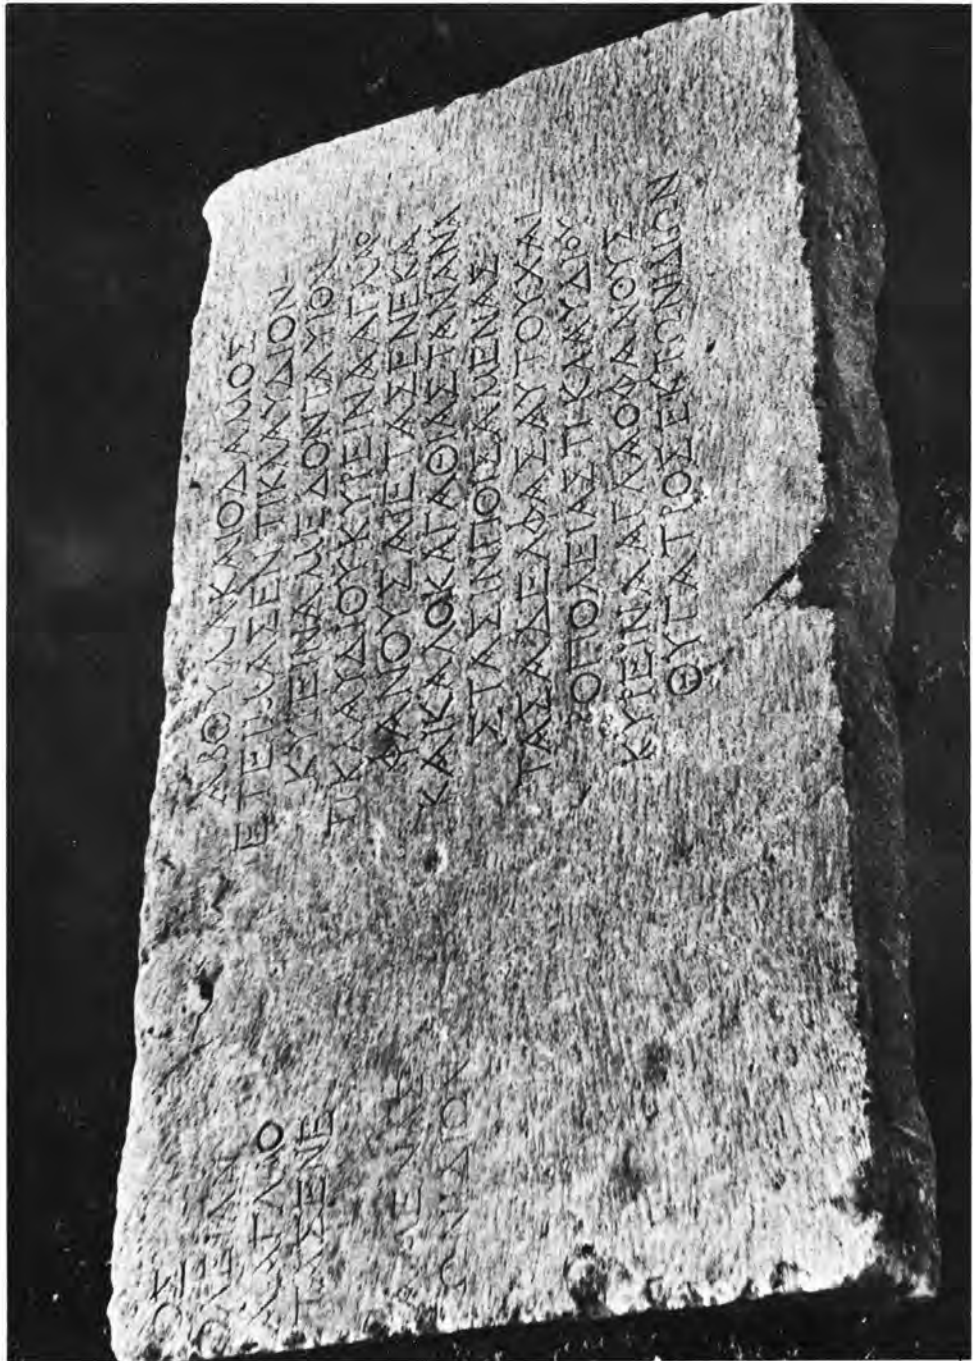 ΟΣ
ΑΓΛΑΟ
ΤΑΣΕΝΕ
ΑΒΟΥΛΑΚΑΙΟΔΑΜΟΣ
ΕΤΕΙΜΑΣΕΝ ΤΙΚΛΑΥΔΙΟΝ
ΚΥΡΕΙΝΑΜΕΔΟΝΤΑΥΙΟΝ
ΤΙΚΛΑΥΔΙΟΥΚΥΡΕΙΝΑΑΓΛΑΟ
ΦΑΝΟΥΣΑΡΕΤΑΣΕΝΕΚΑ
ΚΑΙΚΑΛΟΚΑΓΑΘΙΑΣΤΑΝΑΝΑ
ΣΤΑΣΙΝΠΟΙΗΣΑΜΕΝΑΣ
ΤΑΣΑΔΕΛΦΑΣΑΥΤΟΥΧΑΙ
ΡΟΠΟΛΕΙΑΣΤΙΚΛΑΥΔΙΟΥ
ΚΥΡΕΙΝΑΑΓΛΑΟΦΑΝΟΥΣ
ΘΥΓΑΤΡΟΣ